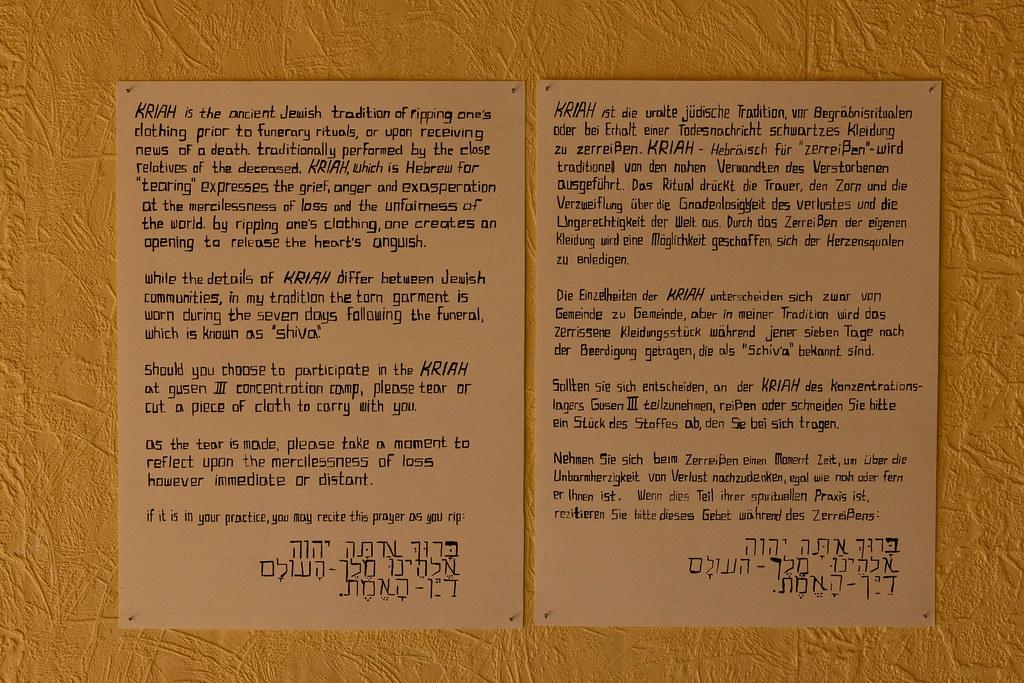 KRIAH is the ancient Jewish tradition of ripping one's
clothing prior to funerary rituals, or upon receiving
news of a death. traditionally performed by the close
relatives of the deceased. KRIAH, which is Hebrew for
"tearing" expresses the grief, anger and exasperation
at the mercilessness of loss and the unfairness of
the world. by ripping one's clothing, one creates an
opening to release the heart's anguish.
while the details of KRIAH differ between Jewish
communities, in my tradition the torn garment is
worn during the seven days following the funeral,
which is known as "shiva."
should you choose to participate in the KRIAH
at gusen III concentration camp, please tear or
cut a piece of cloth to carry with you.
as the tear is made, please take a moment to
reflect upon the mercilessness of loss
however immediate or distant.
if it is in your practice, you may recite this prayer as you rip:
בָּרוּךְ אַתָּה יהוה
אֱלֹהֵינוּ מֶלֶךְ-הָעוֹלָם
דַּיַּן-הָאֱמֶת.
KRIAH ist die uralte jüdische Tradition, vor Begräbnisritualen
oder bei Erhalt einer Todesnachricht schwartzes Kleidung
zu zerreißen. KRIAH - Hebräisch für "zerreißen"-wird
traditionell von den nahen Verwandten des Verstorbenen
ausgeführt. Das Ritual drückt die Trauer, den Zorn und die
Verzweiflung über die Gnadenlosigkeit des verlustes und die
Ungerechtigkeit der Welt aus. Durch das Zerreißen der eigenen
Kleidung wird eine Möglichkeit geschaffen, sich der Herzensqualen
zu enledigen.
Die Einzelheiten der KRIAH unterscheiden sich zwar von
Gemeinde zu Gemeinde, aber in meiner Tradition wird das
zerrissene Kleidungsstück während jener sieben Tage nach
der Beerdigung getragen, die als "Schiv'a" bekannt sind.
Sollten sie sich entscheiden, an der KRIAH des Konzentrations-
lagers Gusen III teilzunehmen, reißen oder schneiden Sie bitte
ein Stück des Stoffes ab, den Sie bei sich tragen.
Nehmen Sie sich beim Zerreißen einen Moment Zeit, um über die
Unbarmherzigkeit von Verlust nachzudenken, egal wie nah oder fern
er Ihnen ist. Wenn dies Teil ihrer spirituellen Praxis ist,
rezitieren Sie bitte dieses Gebet während des Zerreißens:
בָּרוּךְ אַתָּה יהוה
אֱלֹהֵינוּ מֶלֶךְ-הָעוֹלָם
דַּיַּן-הָאֱמֶת.